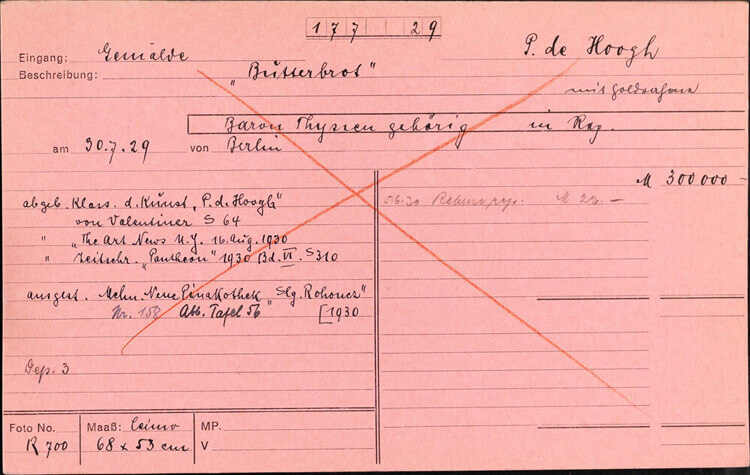 177 29
Eingang: Gemälde P. de Hoogh
Beschreibung: „Butterbrot"
mit Goldrahmen
Baron Thyssen gehörig in Rep.
am 30.7.29 von Berlin
M 300 000 -
abgeb. Klass. d. Kunst „P. de Hoogh"
von Valentiner S 64
" „The Art News N.Y. 16. Aug. 1930
" Zeitschr. „Pantheon" 1930 Bd. VI. S 310
5.6.30 M 22. –
ausgest. Mchn. Neue Pinakothek „Slg. Rohoncz"
Nr. 158 Abb. Tafel 56 [1930
Dep. 3
Foto No. Maaß: MP.
R 700 68 x 53 cm V